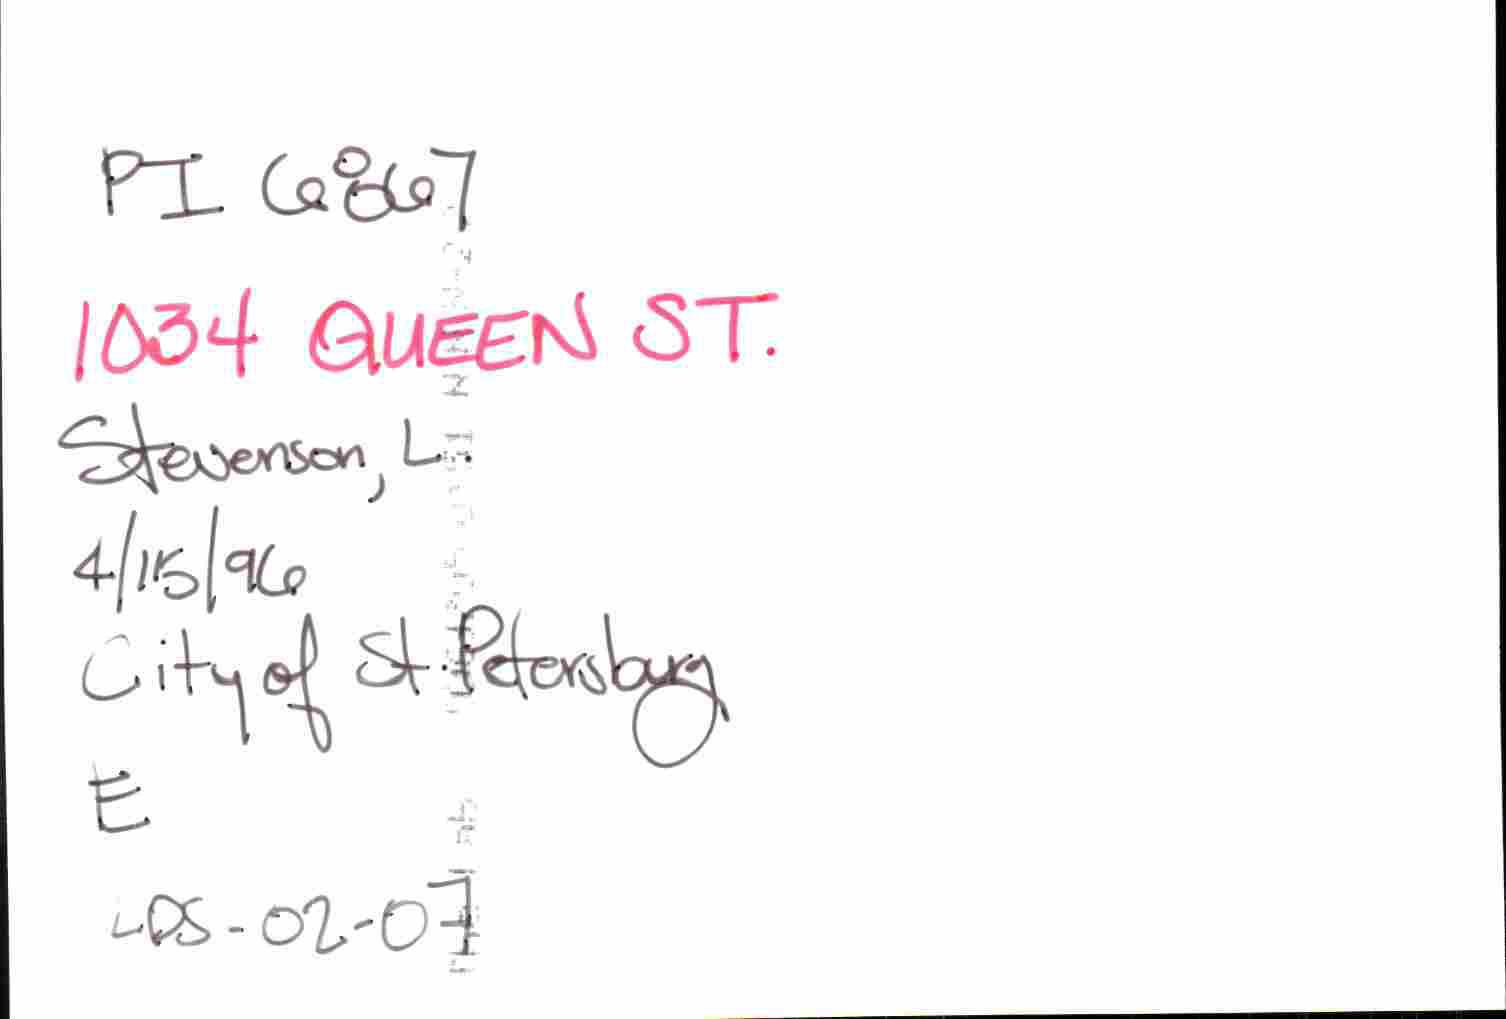 PI 6867
1034 QUEEN ST.
Stevenson, L.
4/15/96
City of St. Petersburg
E
LDS-02-07